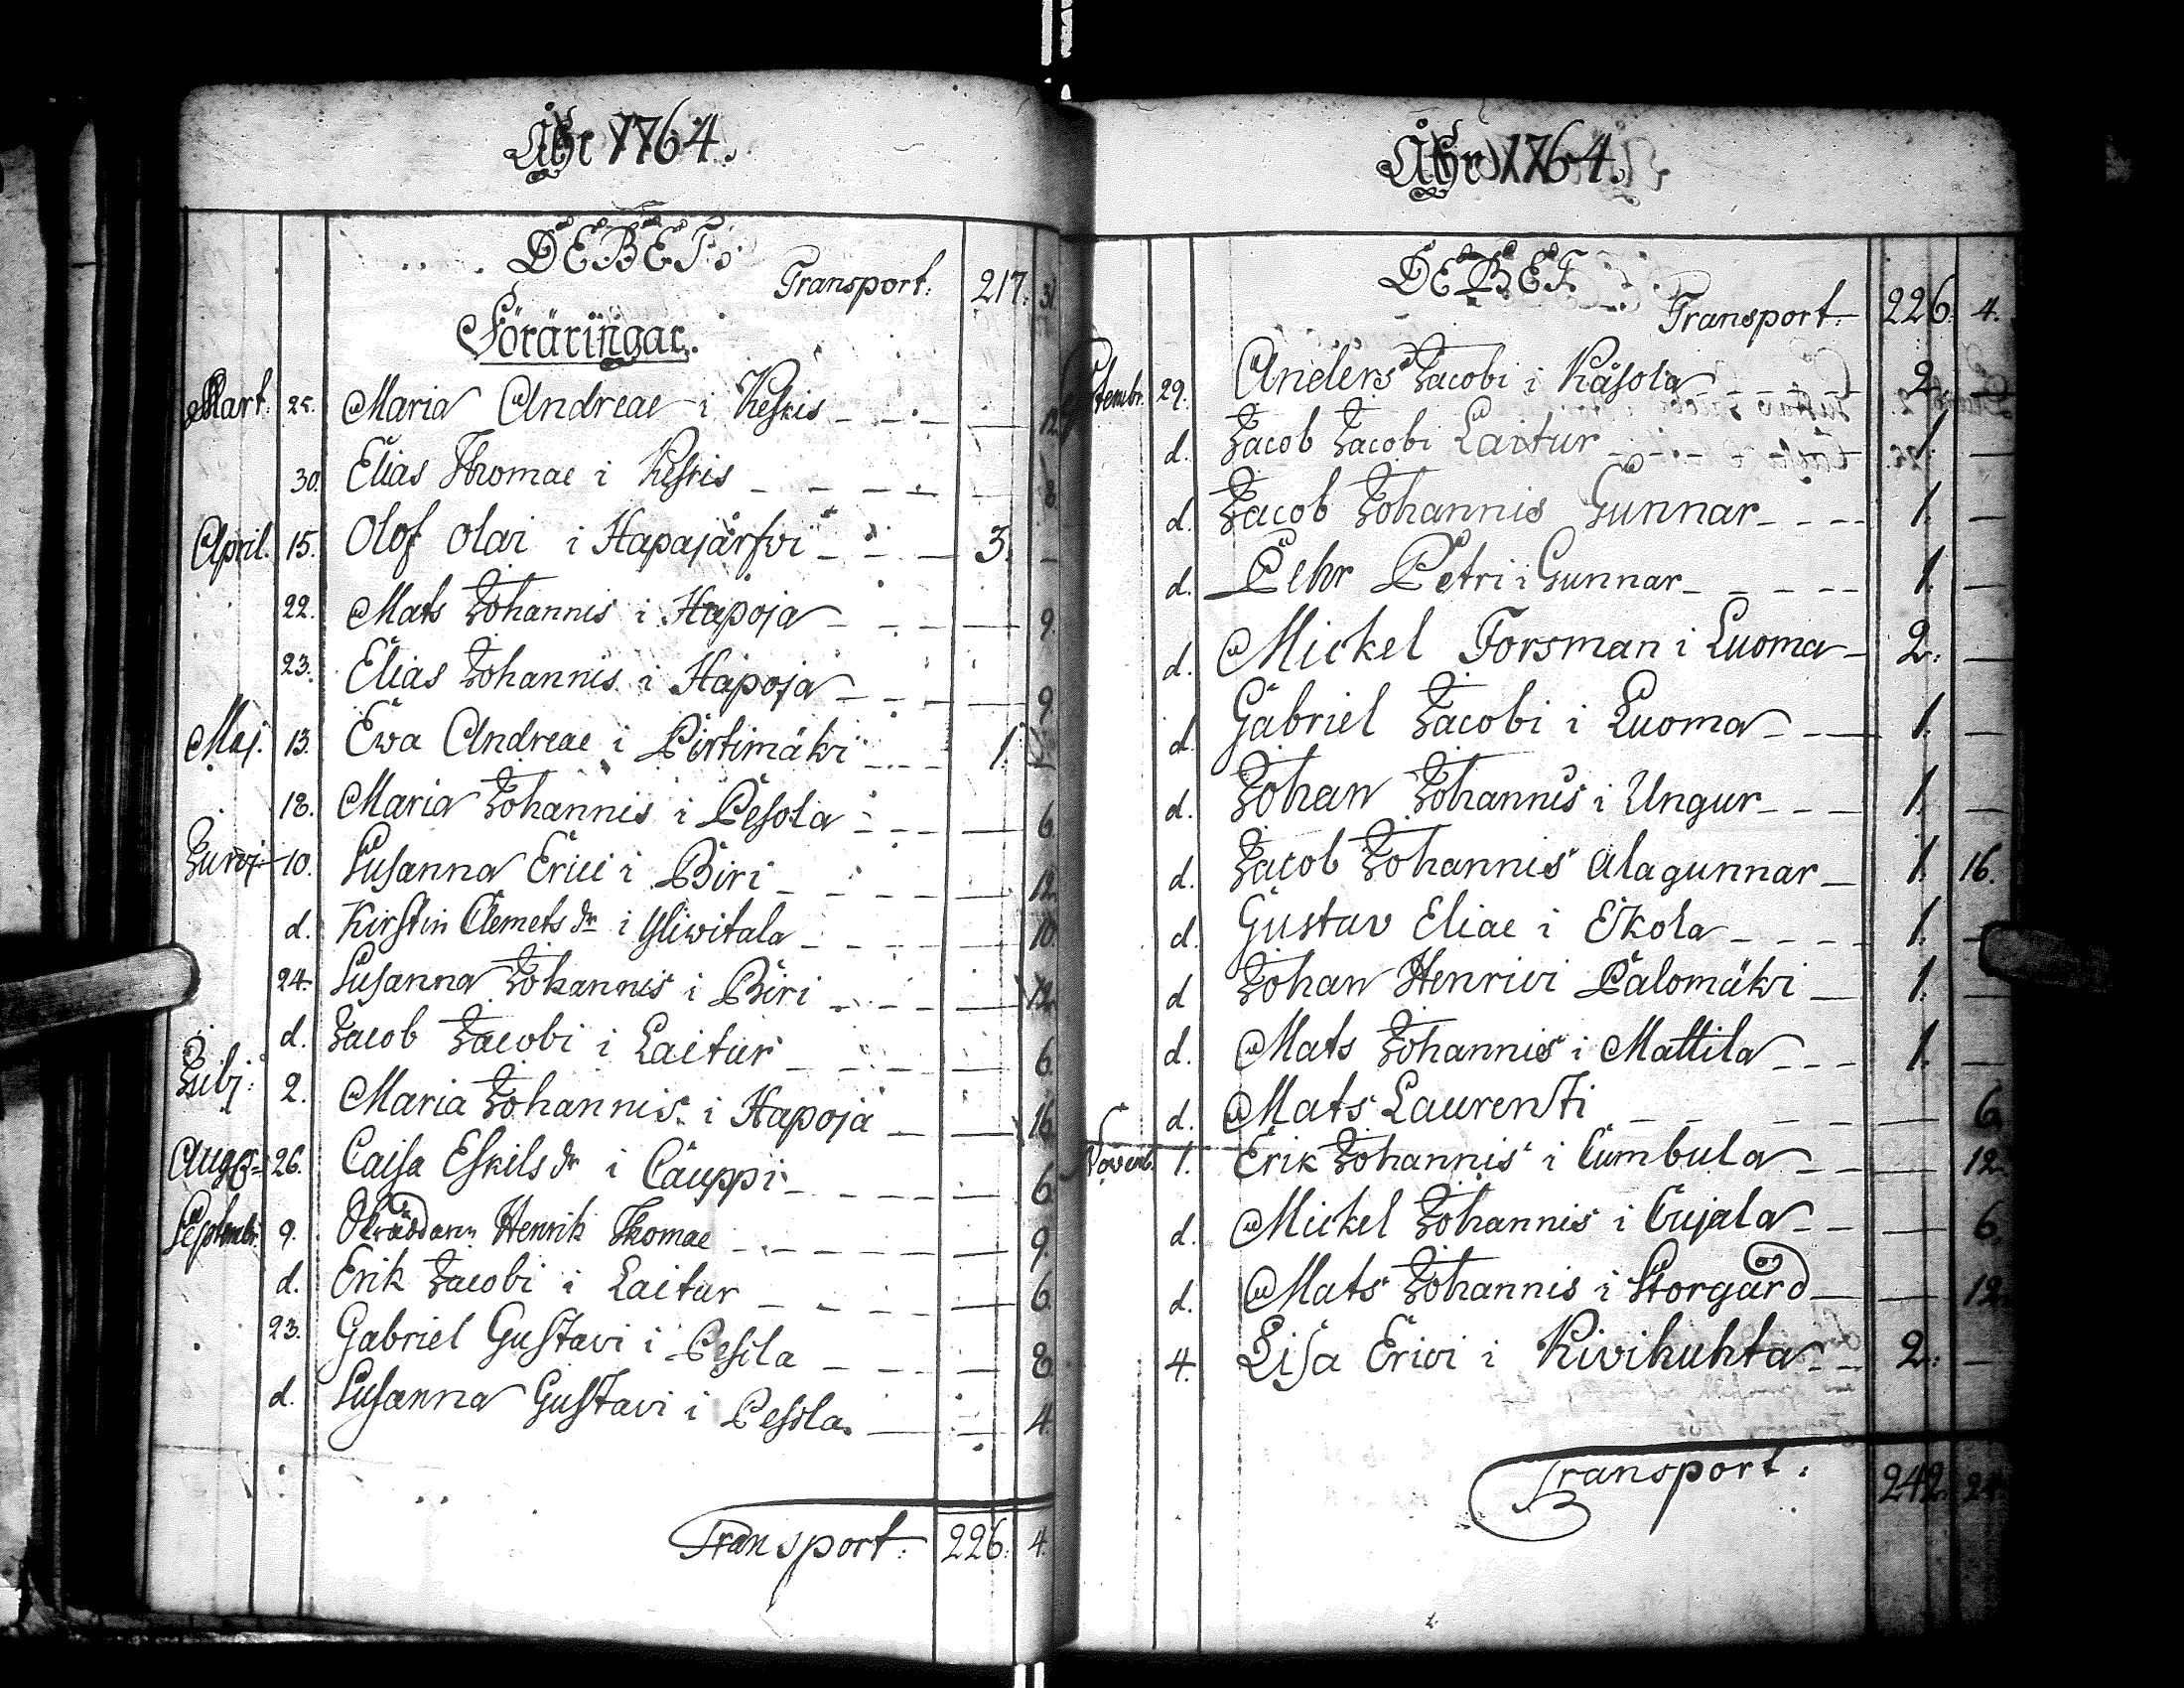 Åhr 1764.
DEBET.
Transport. 217. 31
Föräringar.
Mart. 25. Maria Andreae i Keskis - - - — 12.
30. Elias Thomae i Keskis - - - - — 8
April. 15. Olof Olai i Hapajärfwi - - — 3. -
22. Mats Johannis i Hapoja - - - — 9.
23. Elias Johannis i Hapoja - - — 9.
Maj. 13. Ewa Andreae i Pirtimäki - - - 1. —
18. Maria Johannis i Pesola - - - — 6.
Junij 10. Susanna Erici i Biri - - - - — 12.
d. Kirstin Clemets dr i Yliwitala - - - - — 10.
24. Susanna Johannis i Biri - - - — 12.
d. Jacob Jacobi i Laitur - - - - — 6.
Julij. 2. Maria Johannis i Hapoja — — 16.
Aug. 26. Caisa Eskils dr i Cauppi - - - - — 6.
Septembr. 9. Henrik Thomae - - - - — 9.
d. Erik Jacobi i Laitur - - - - — 6.
23. Gabriel Gustavi i Pesola - - - — 8.
d. Susanna Gustavi i Pesola. — — 4.
Transport. 226. 4.
Åhr 1764.
DEBET.
Transport. 226. 4.
29. Anders Jacobi i Käsola - - - 2. —
d. Jacob Jacobi Laitur - - - - 1. —
d. Jacob Johannis Gunnar - - - - 1. —
d. Pehr Petri i Gunnar - - - - - 1. —
d. Mickel Forsman i Luoma - 2. —
d. Gabriel Jacobi i Luoma - - — 1. —
d. Johan Johannis i Ungur - - - 1. —
d. Jacob Johannis Alagunnar — 1. 16.
d. Gustav Eliae i Eikola - - - - 1. —
d. Johan Henrici Palomäki — 1. —
d. Mats Johannis i Mattila - - - 1. —
d. Mats Laurenti - - - - — 6.
Novemb. 1. Erik Johannis i Cumbula - - — 12.
d. Mickel Johannis i Cujala - - — 6.
d. Mats Johannis i Storgård — — 12.
4. Lisa Erici i Kivihuhta - - 2. —
Transport. 242. 24